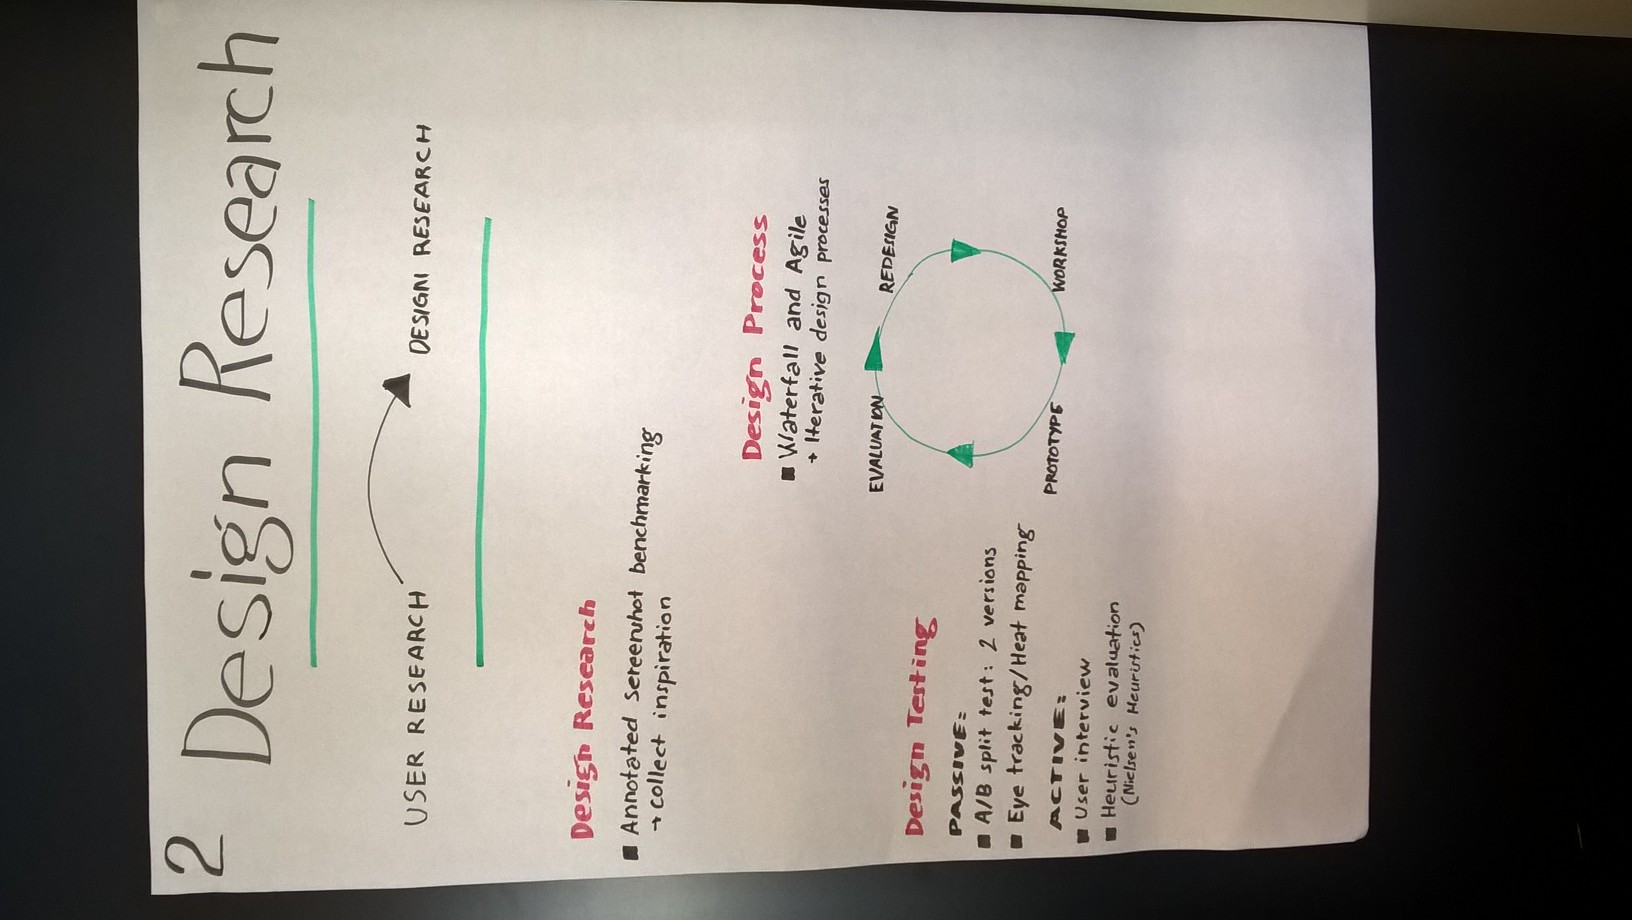 2 Design Research
USER RESEARCH
DESIGN RESEARCH
Design Research
■ Annotated screenshot benchmarking
→ collect inspiration
Design Process
■ Waterfall and Agile
+ Iterative design processes
EVALUATION
REDESIGN
PROTOTYPE
WORKSHOP
Design Testing
PASSIVE:
■ A/B split test: 2 versions
■ Eye tracking/Heat mapping
ACTIVE:
■ User interview
■ Heuristic evaluation
(Nielsen's Heuristics)